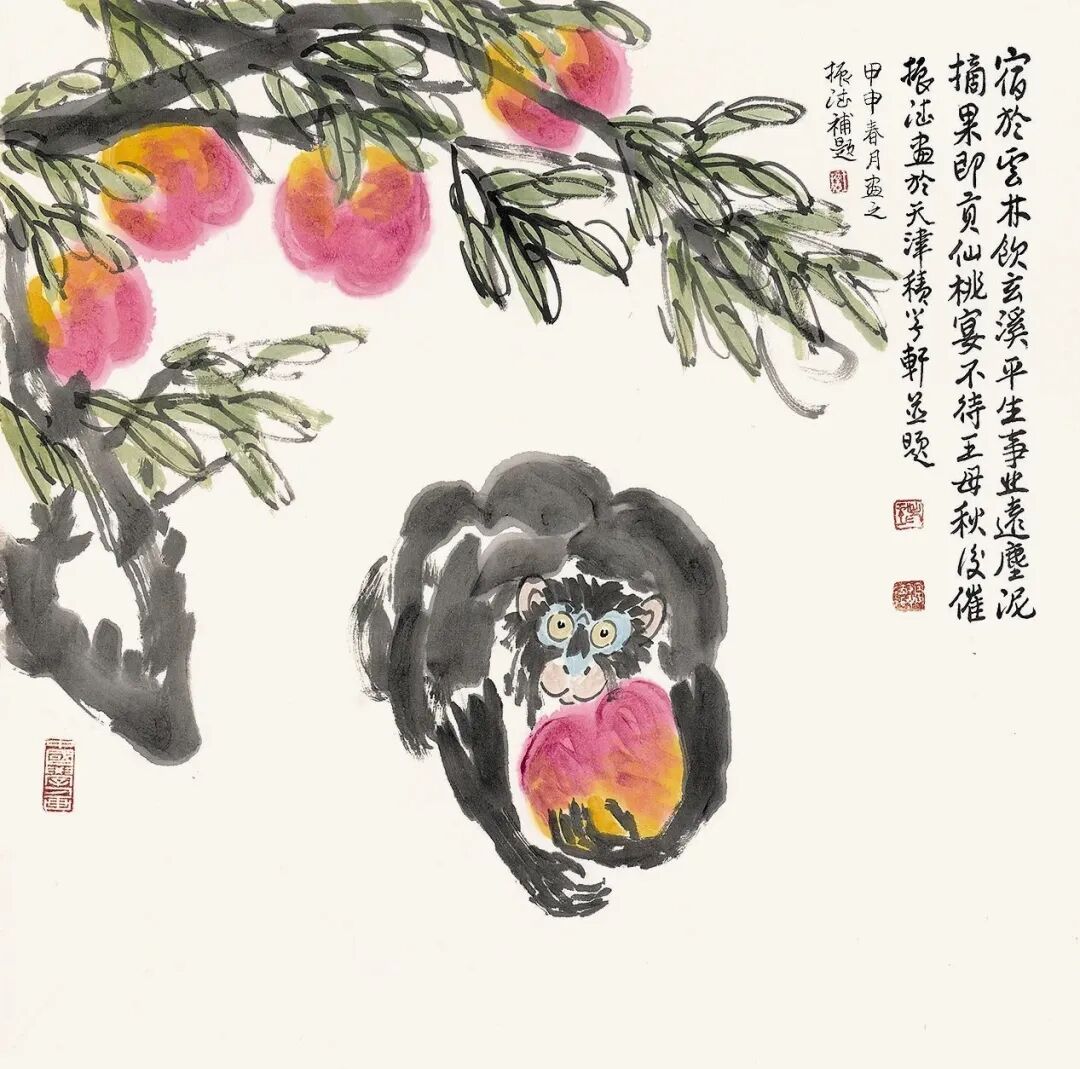 宿於雲林飲玄溪平生事業遠塵泥
摘果即貢仙桃宴不待王母秋後催
振濤畫於天津積學軒並題
甲申春月畫之
振濤補題